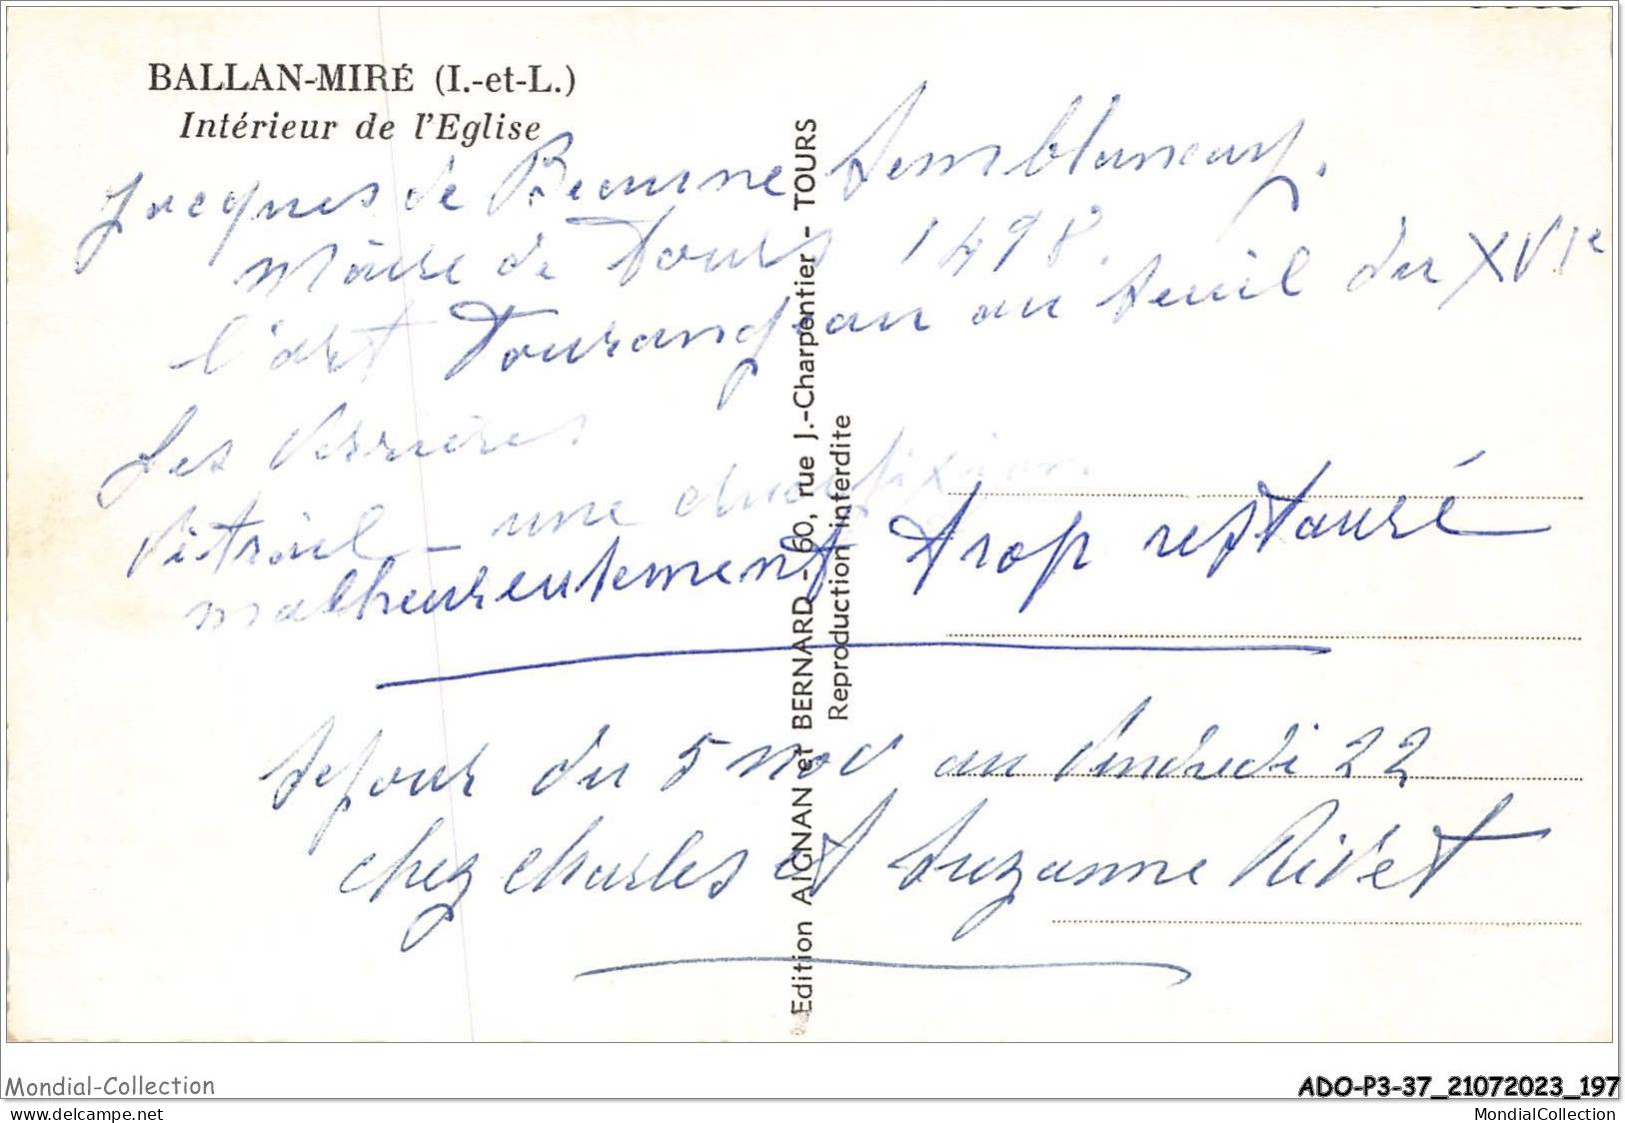 BALLAN-MIRÉ (I.-et-L.)
Intérieur de l'Eglise
Jacques de Beaune Semblancay.
Maire de Tours 1498.
l'art Tourangeau au seuil du XVIe
Les Verrières
Vitrail - une crucifixion
malheureusement trop restauré
Séjour du 5 nov au Vendredi 22
chez Charles et Suzanne Rivet
Edition AIGNAN et BERNARD - 60, rue J.-Charpentier - TOURS
Reproduction interdite
Mondial-Collection
ADO-P3-37_21072023_197
www.delcampe.net
MondialCollection